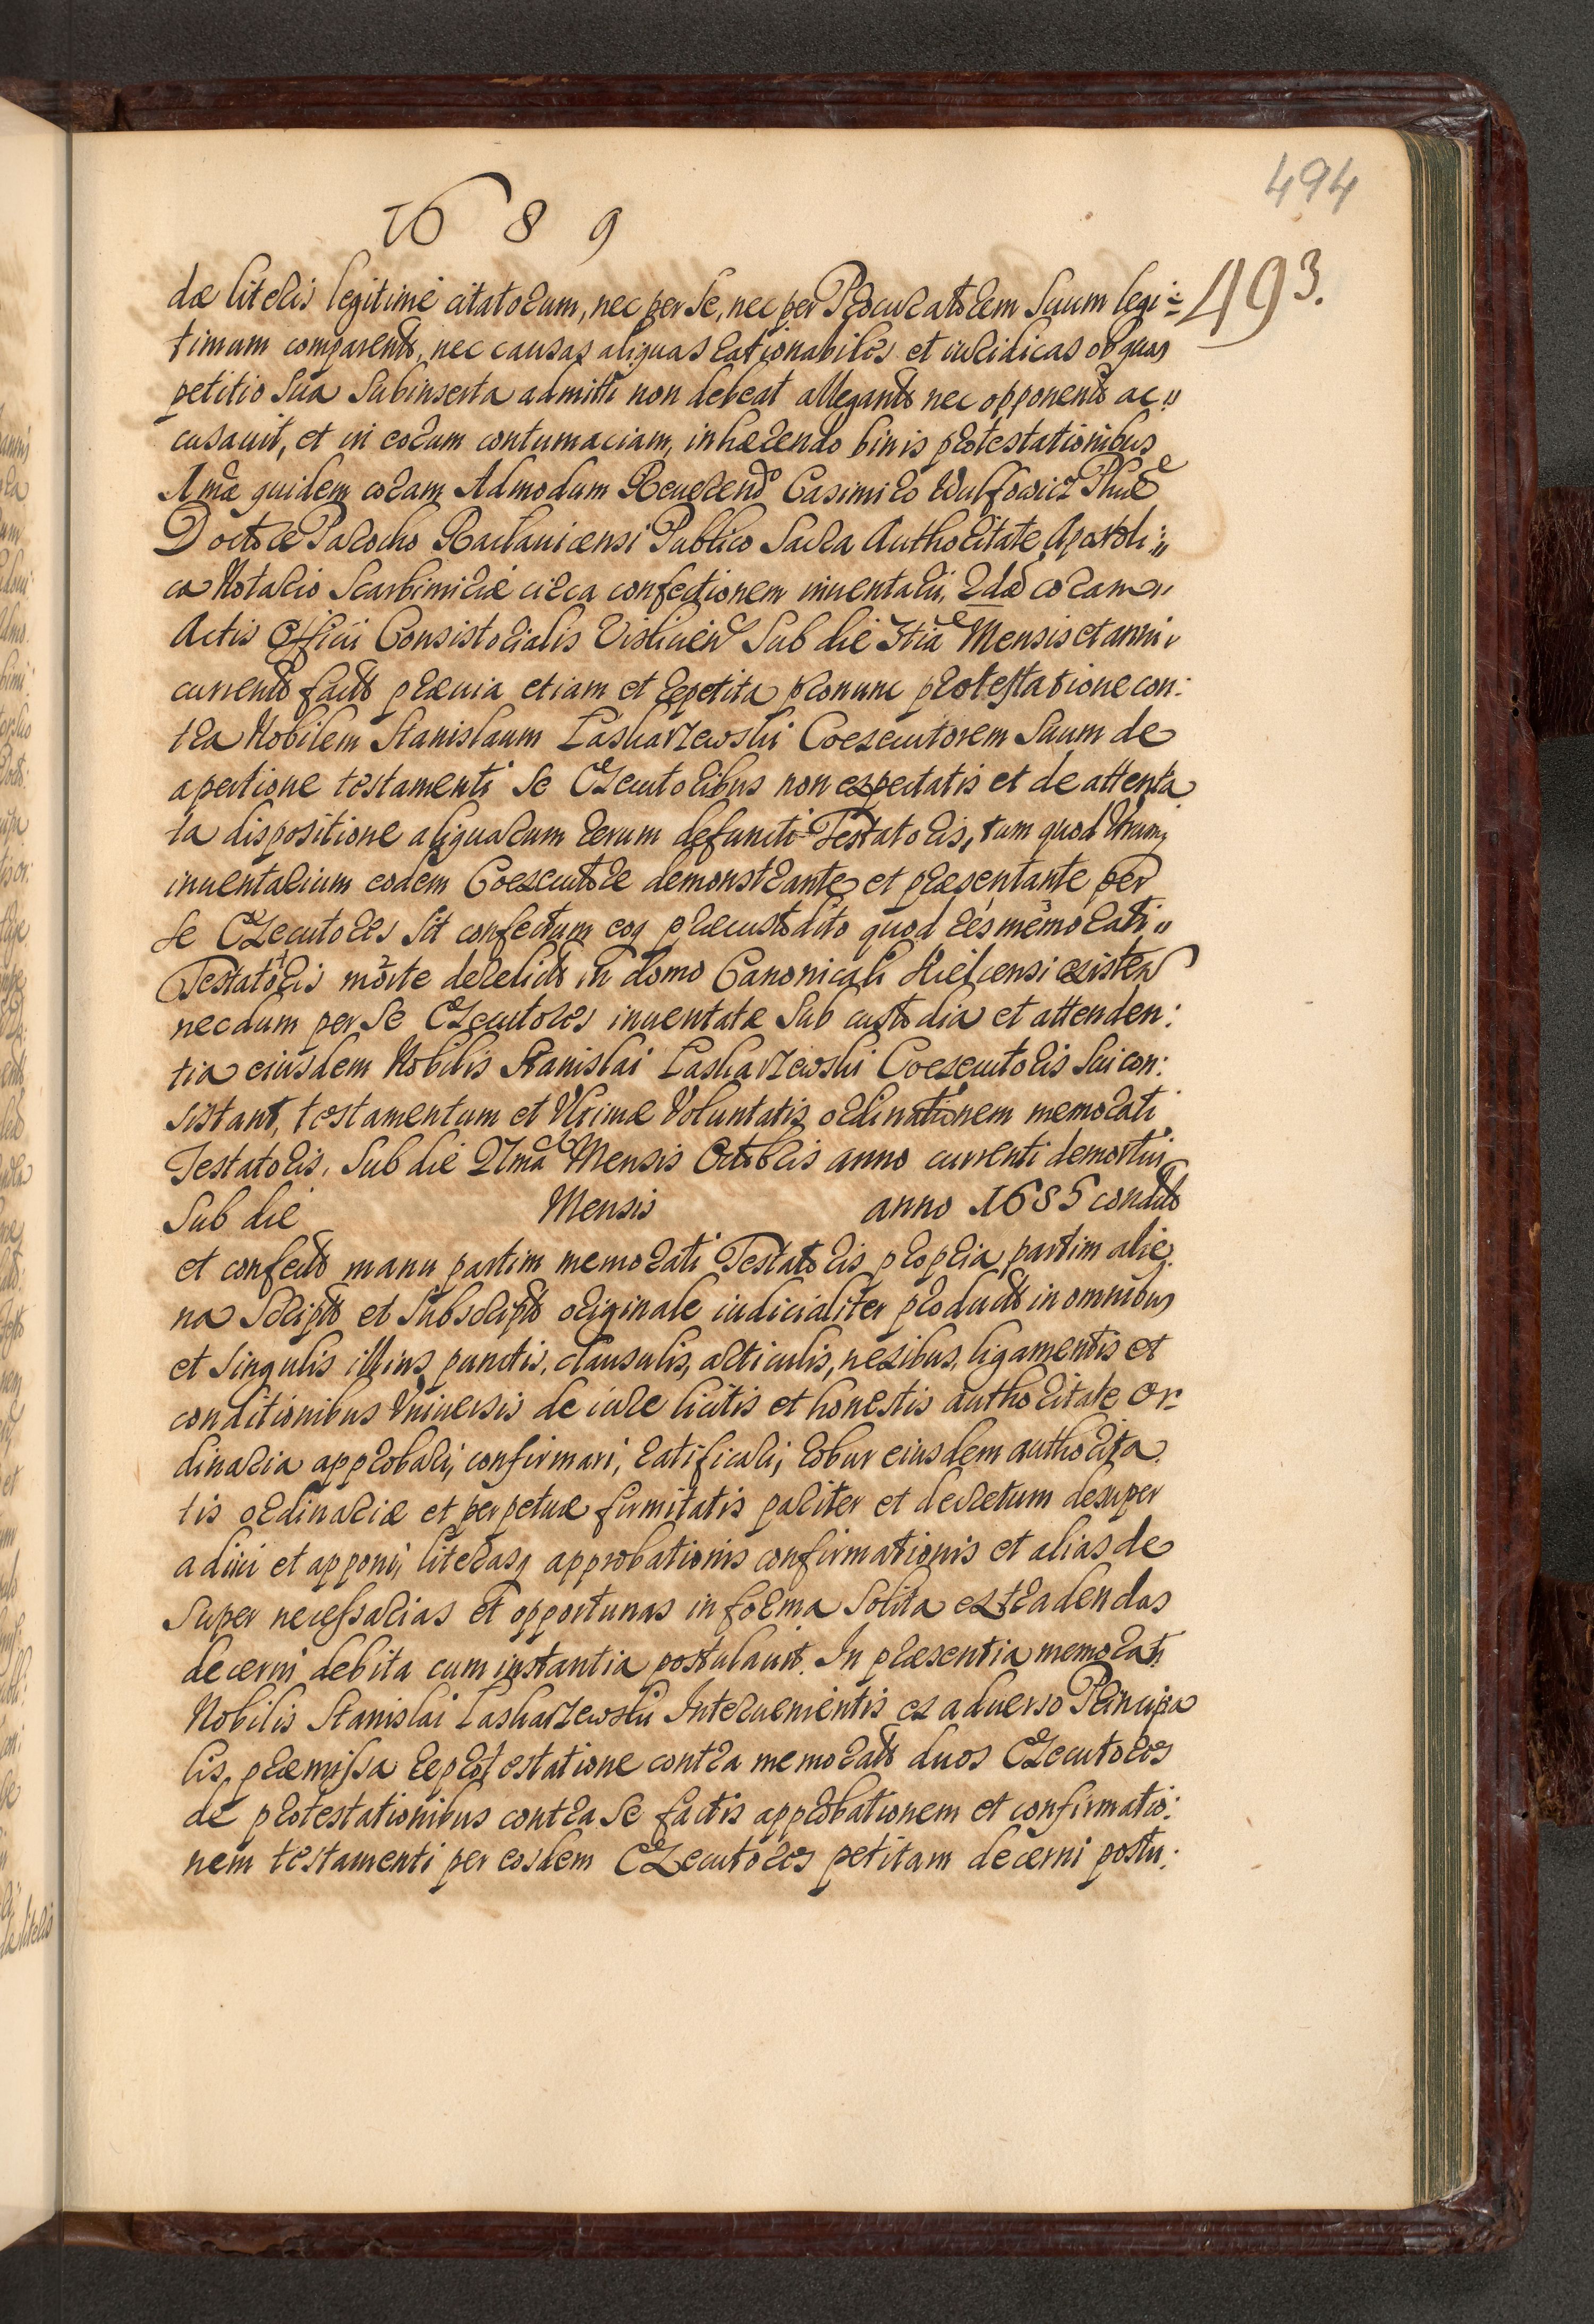 494
1689
493.
dæ literis legitime citatorum, nec per se, nec per Procuratorem suum legi=
timum comparents, nec causas aliquas rationabiles et iuridicas ob quas
petitio sua subinserta admitti non debeat allegants nec opponents ac„
cusavit, et in eorum contumaciam, inhærendo binis protestationibus
1mæ quidem coram Admodum Reverendo Casimiro Wulfowicz Phiæ
Doctore Parocho Raclavicensi Publico Sacra Authoritate Apostoli„
ca Notario Scarbimiriæ circa confectionem inventarii, 2dæ coram„
Actis Officii Consistorialis Vislicien Sub die 3tia Mensis et anni
currents facts prævia etiam et repetita pronunc protestatione con:
tra Nobilem Stanislaum Laskarzewski Coexecutorem suum de
apertione testamenti se Executoribus non expectatis et de attenta
ta dispositione aliquarum rerum defuncti Testatoris, tum quod
inventarium eodem Coexecutore demonstrante et præsentante per
se Executores sit confectum eoq præcustodito quod res memorati„
Testatoris morte derelicts in domo Canonicali Kielcensi existen
necdum per se Executores inventatæ sub custodia et attenden:
tia eiusdem Nobilis Stanislai Laskarzewski Coexecutoris sui con:
sistant, testamentum et Ultimæ Voluntatis ordinationem memorati
Testatoris, sub die 27ma Mensis Octobris anno currenti demortui
Sub die Mensis anno 1685 condits
et confects manu partim memorati Testatoris propria partim alie
na scripts et subscripts originale iudicialiter products in omnibus
et singulis illius punctis, clausulis, articulis, nexibus, ligamentis et
conditionibus Universis de iure licitis et honestis authoritate or=
dinaria approbari, confirmari, ratificari, robur eiusdem authorita
tis ordinariæ et perpetuæ firmitatis pariter et decretum desuper
adiici et apponi, literasq approbationis confirmationis et alias de
super necessarias et opportunas in forma solita extradendas
decerni debita cum instantia postulavit. In præsentia memorati
Nobilis Stanislai Laskarzewski Intervenientis ex adverso Principa
lis, præmissa reprotestatione contra memorats duos Executores
de protestationibus contra se factis approbationem et confirmatio:
nem testamenti per eosdem Executores petitam decerni postu: